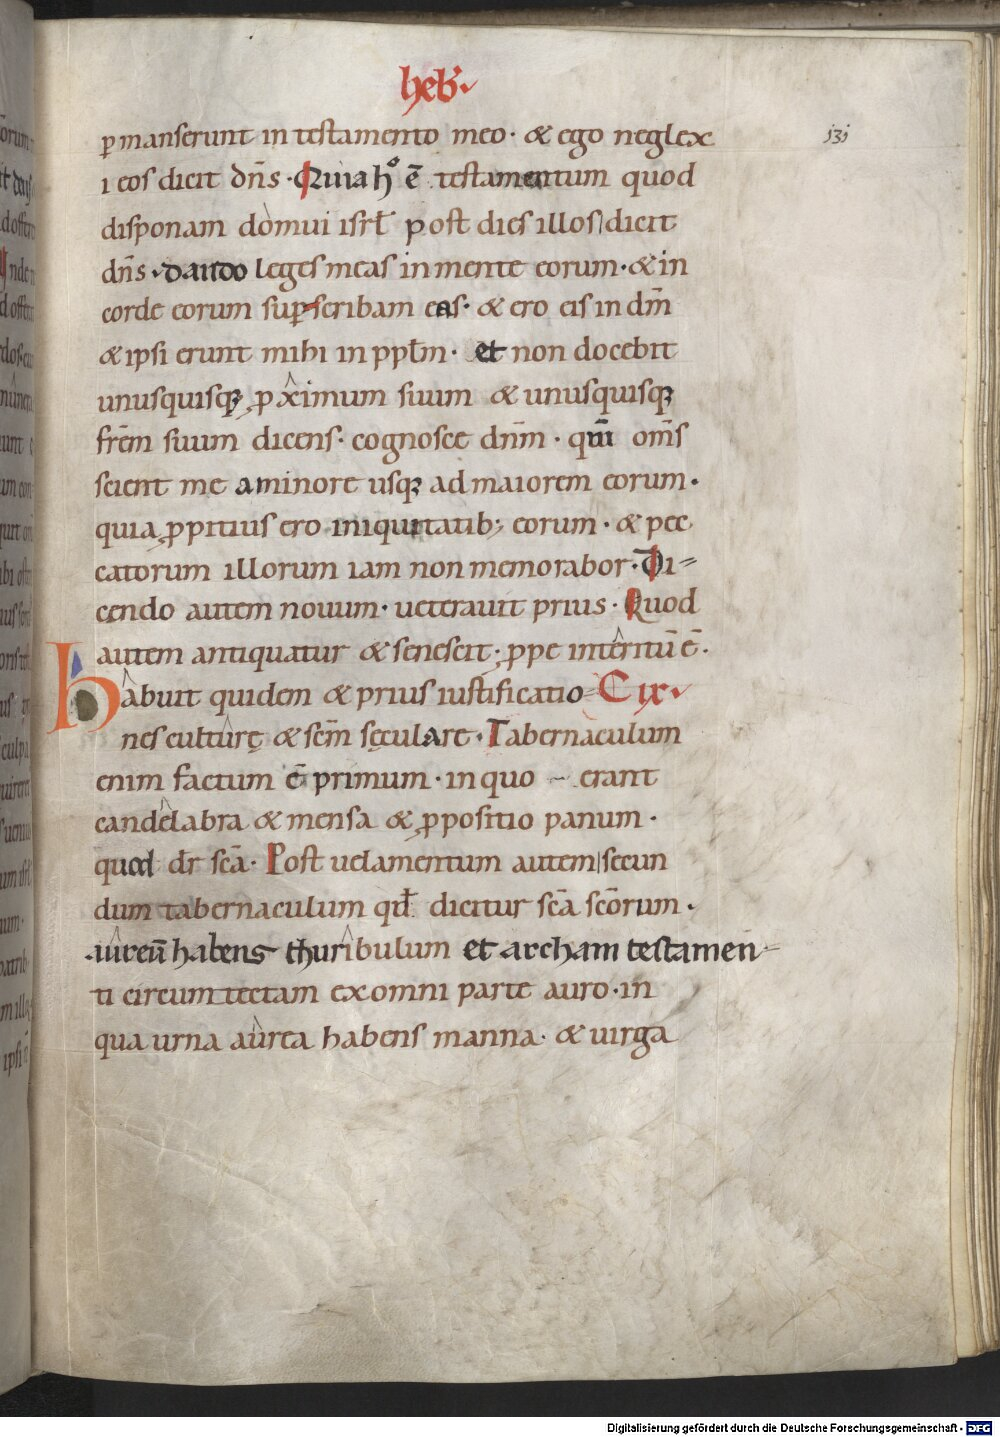 heb̄.
131
ꝑmanserunt in testamento meo · & ego neglex
i eos dicit dn̄s · Quia hͦ ē testamentum quod
disponam domui isrł post dies illos dicit
dn̄s · dando leges meas in mente eorum · & in
corde eorum suꝑscribam eas · & ero eis in dm̄
& ipsi erunt mihi in ppłm · et non docebit
unusquisqꝫ ꝓximum suum & unusquisqꝫ
frēm suum dicens · cognosce dnm̄ · qm̄ oms̄
scient me a minore usqꝫ ad maiorem eorum ·
quia ꝓpitius ero iniquitatibꝫ eorum · & pec
catorum illorum iam non memorabor · Di-
cendo autem nouum · ueterauit prius · Quod
autem antiquatur & senescit · ꝓpe interitū ē ·
habuit quidem & prius iustificatio- C ix ·
nes culturę & scm̄ sęculare · Tabernaculum
enim factum ē primum · in quo erant
candelabra & mensa & ꝓpositio panum ·
quod dr̄ scā · Post uelamentum autem secun
dum tabernaculum qd̄ dicitur scā scōrum ·
aureū habens thuribulum et archam testamen-
ti circumtectam ex omni parte auro · in
qua urna aurea habens manna · & uirga
Digitalisierung gefördert durch die Deutsche Forschungsgemeinschaft - DFG